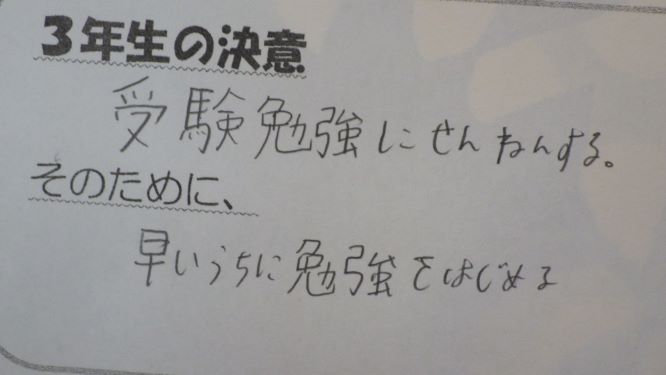 3年生の決意
受験勉強にせんねんする。
そのために、
早いうちに勉強をはじめる